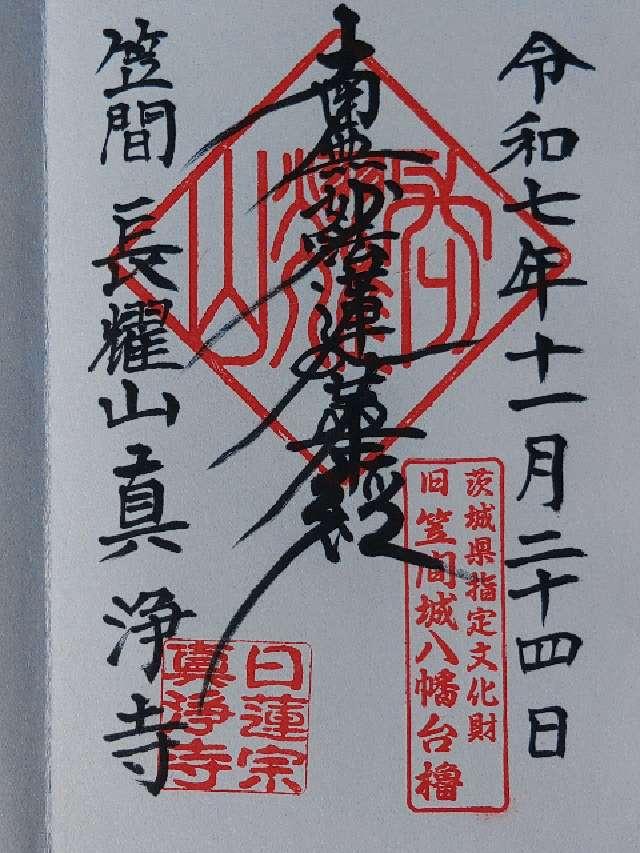 令和七年十一月二十四日
茨城県指定文化財
旧笠間城八幡台櫓
南無妙法蓮華経
長耀山
笠間 長耀山真浄寺
日蓮宗
真浄寺